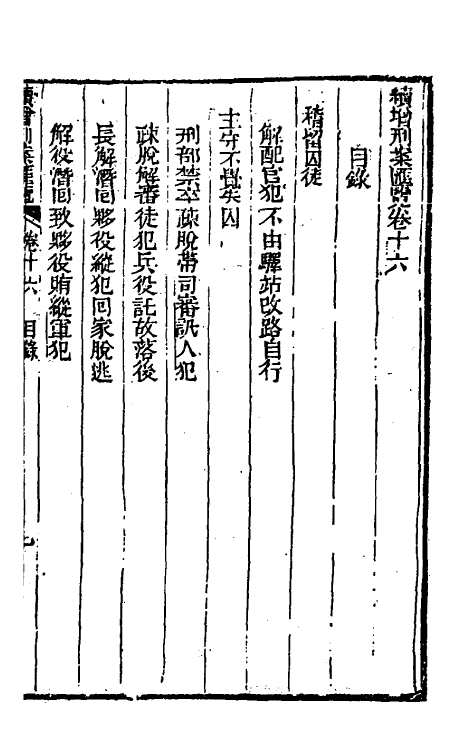 續增刑案匯覽卷十六
目錄
稽留囚徒
解配官犯不由驛站改路自行
主守不覺失囚
刑部禁卒疎脫帶司審訊人犯
疎脫解審徒犯兵役託故落後
長解潛回夥役縱犯回家脫逃
解役潛回致夥役賄縱軍犯
續增刑案匯覽 卷十六 目錄